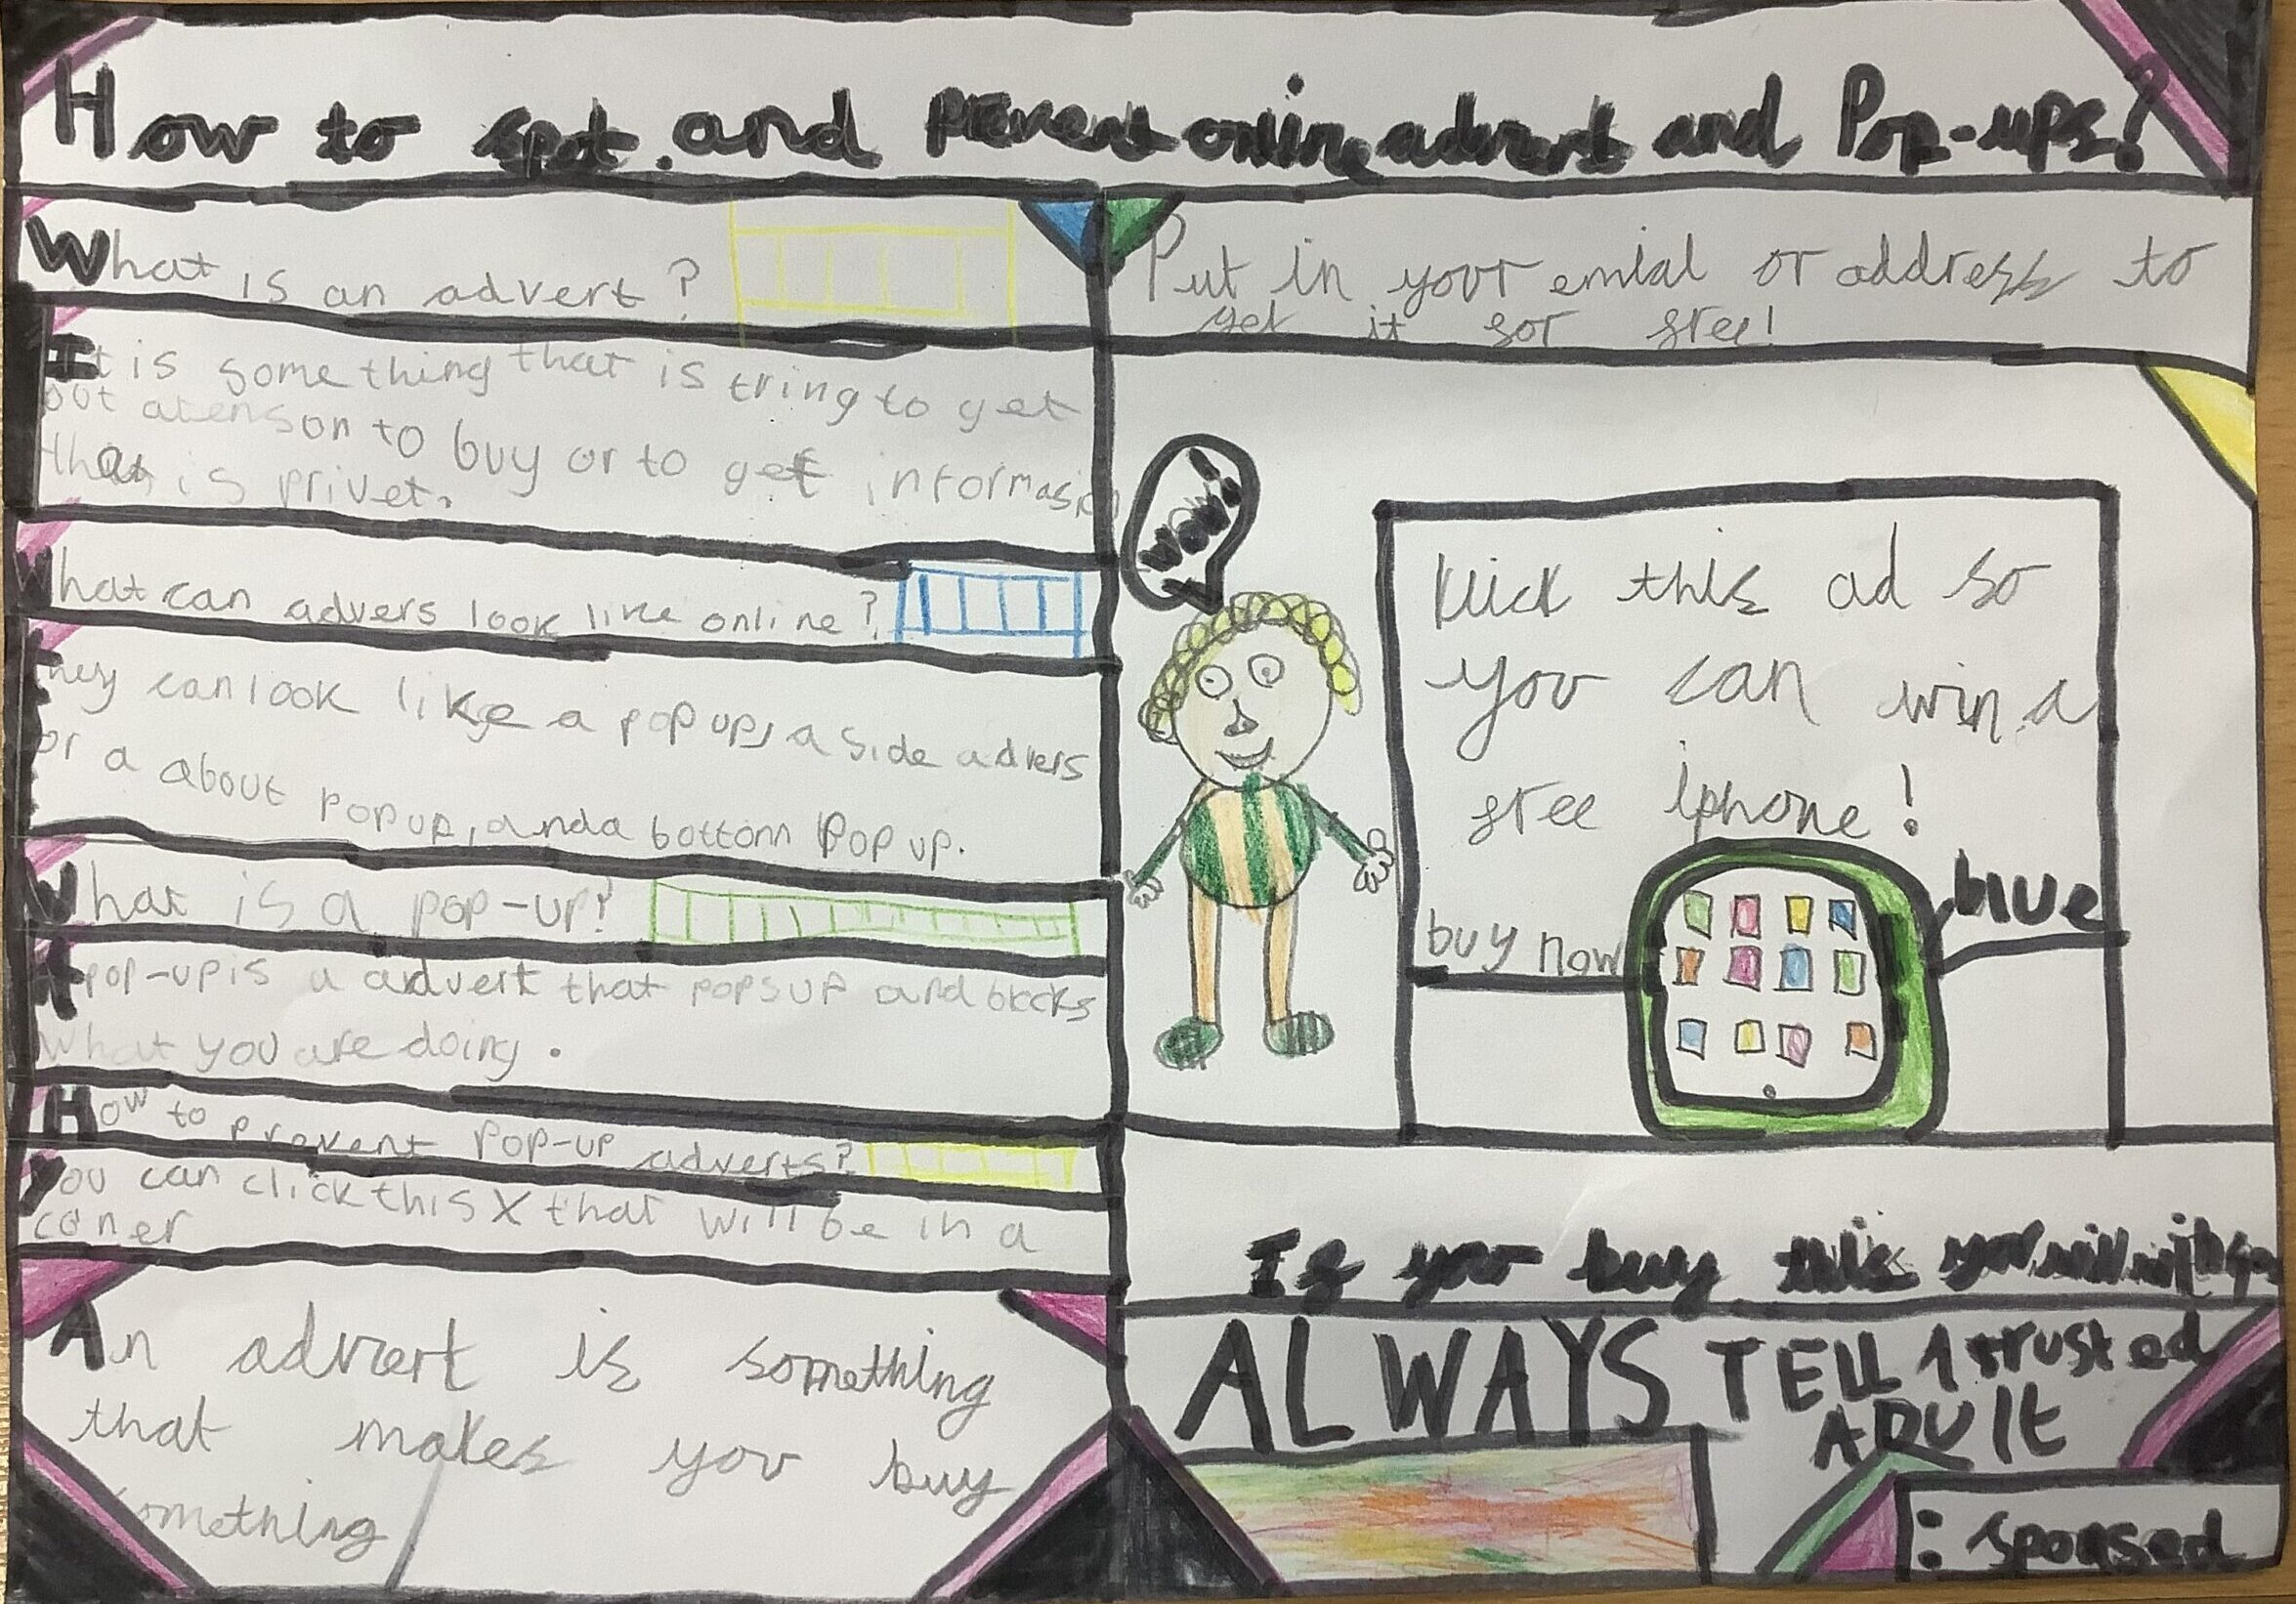 How to spot and prevent online advert and Pop-ups!
What is an advert?
It is something that is tring to get
out atenson to buy or to get informasion
that is privet.
What can advers look like online?
they can look like a pop up, a side advers
or a about pop up, and a bottom Pop up.
What is a pop-up?
A pop-up is a advert that pops up and blocks
What you are doing.
How to prevent Pop-up adverts?
You can click this X that will be in a
coner
An advert is something
that makes you buy
something
Put in your emial or address to
get it for free!
Wow!
klick this ad so
you can win a
free iphone!
buy now
blue
If you buy this you will
ALWAYS TELL A trusted
ADULT
: sponsed